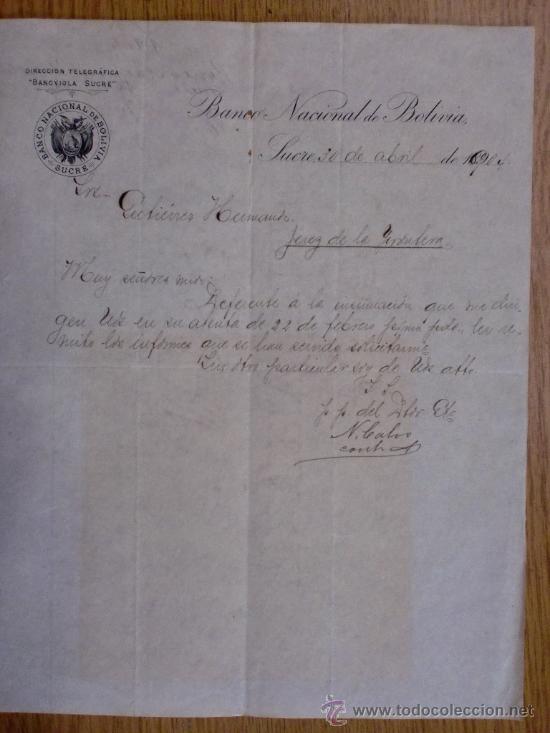 DIRECCION TELEGRÁFICA
"BANCVIOLA SUCRE"
BANCO NACIONAL DE BOLIVIA
SUCRE
Banco Nacional de Bolivia.
Sucre, 30 de abril de 1904
Sres
Gutiérrez Hermanos
Jerez de la Frontera
Muy señores mios:
Referente á la insinuación que me diri-
gen Uds en su atenta de 22 de febrero ppmo pdo, les re-
mito los informes que se han servido solicitarme
Sin otro particular soy de Uds atto
S. S.
p p del Dtor Gte
N. Calvo
contr
todocoleccion
www.todocoleccion.net